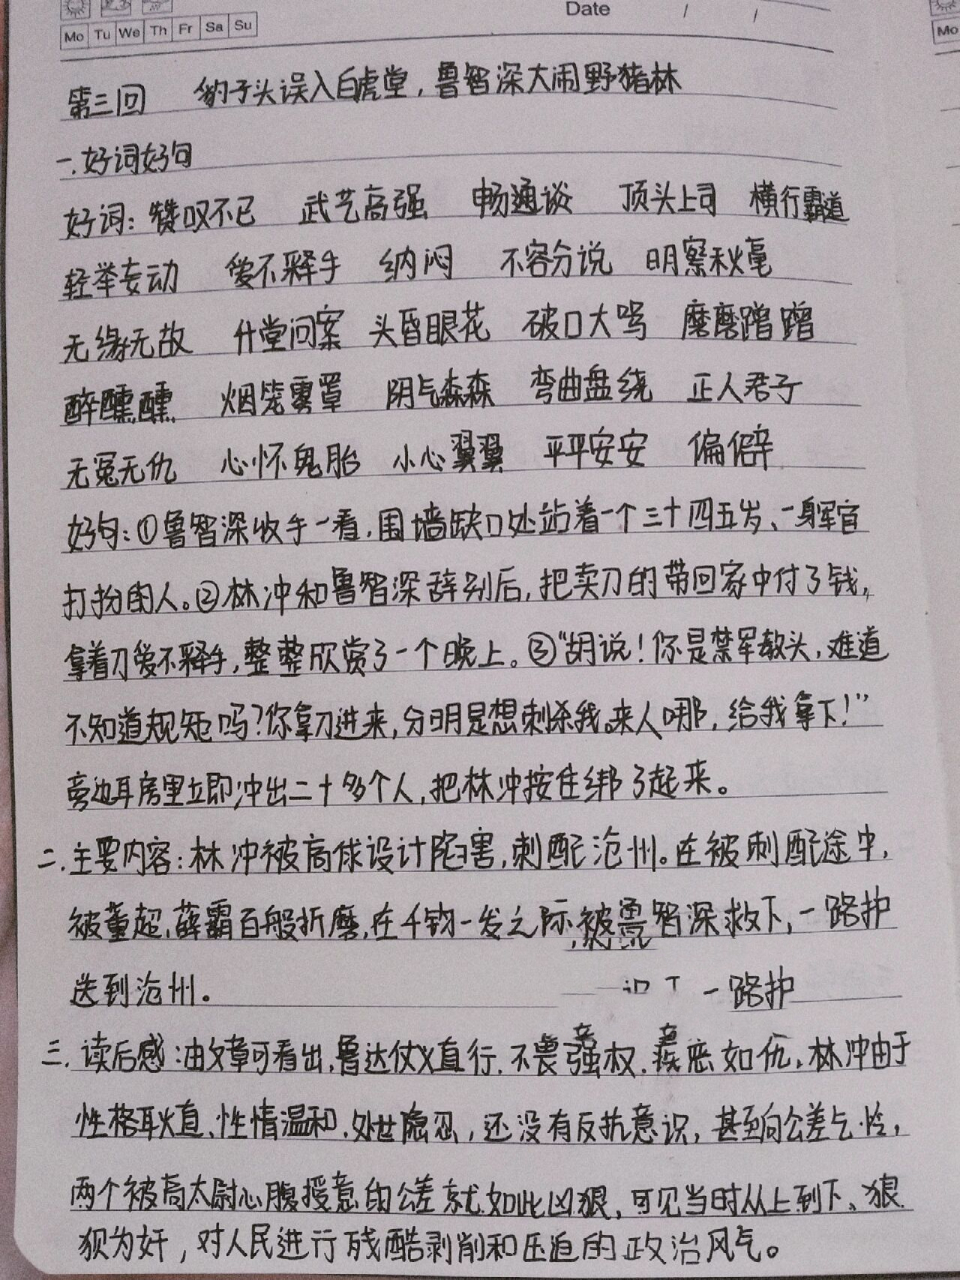 Date / /
Mo Tu We Th Fr Sa Su
Mo
第三回 豹子头误入白虎堂，鲁智深大闹野猪林
一.好词好句
好词：赞叹不已 武艺高强 畅通谈 顶头上司 横行霸道
轻举妄动 爱不释手 纳闷 不容分说 明察秋毫
无缘无故 升堂问案 头昏眼花 破口大骂 磨磨蹭蹭
醉醺醺 烟笼雾罩 阴气森森 弯曲盘绕 正人君子
无冤无仇 心怀鬼胎 小心翼翼 平平安安 偏僻
好句：①鲁智深收手一看，围墙缺口处站着一个三十四五岁、一身军官
打扮的人。②林冲和鲁智深辞别后，把卖刀的带回家中付了钱，
拿着刀爱不释手，整整欣赏了一个晚上。③“胡说！你是禁军教头，难道
不知道规矩吗？你拿刀进来，分明是想刺杀我。来人哪，给我拿下！”
旁边耳房里立即冲出二十多个人，把林冲按住绑了起来。
二.主要内容：林冲被高俅设计陷害，刺配沧州。在被刺配途中，
被董超，薛霸百般折磨，在千钧一发之际，被鲁智深救下，一路护
送到沧州。 一路护
三.读后感：由文章可看出，鲁达仗义直行，不畏强权，嫉恶如仇，林冲由于
性格耿直，性情温和，处世隐忍，还没有反抗意识，甚至向公差乞怜，
两个被高太尉心腹授意的公差就如此凶狠，可见当时从上到下、狼
狈为奸，对人民进行残酷剥削和压迫的政治风气。